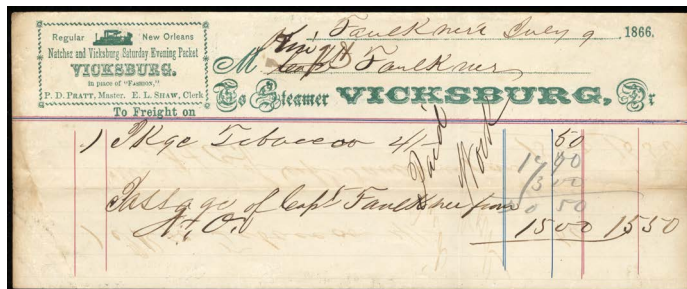 Regular New Orleans
Natchez and Vicksburg Saturday Evening Packet
VICKSBURG.
in place of "FASHION,"
P. D. PRATT, Master. E. L. SHAW, Clerk
To Freight on
Faulkner's July 9 1866.
M Capt Faulkner
To Steamer VICKSBURG, Dr
1 Pkge Tobacco 50
Paid
Passage of Capt Faulkner from
N. O. 1500 1550